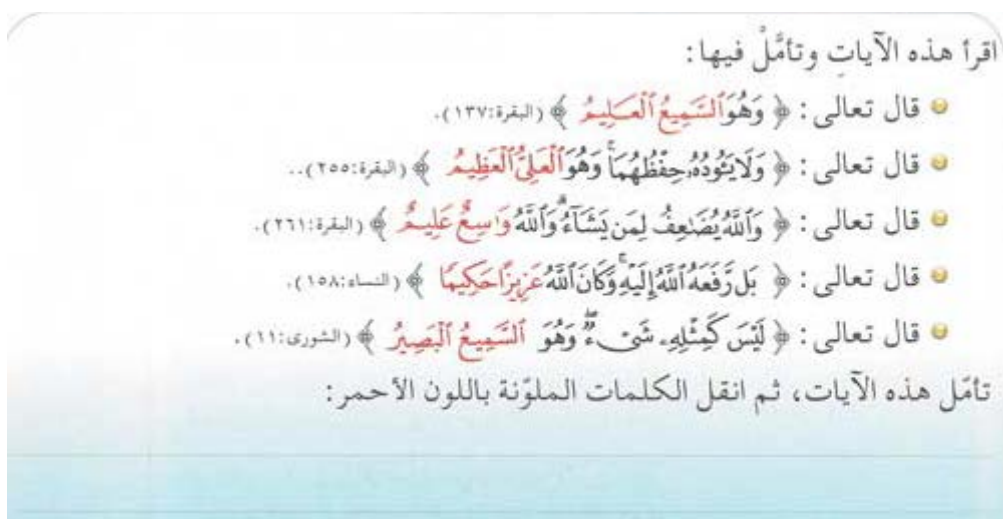 اقرأ هذه الآياتِ وتأمَّلْ فيها:
قال تعالى: ﴿ وَهُوَ ٱلسَّمِيعُ ٱلْعَـلِيمُ ﴾ (البقرة:١٣٧).
قال تعالى: ﴿ وَلَا يَـُٔودُهُۥ حِفْظُهُمَاۚ وَهُوَ ٱلْعَلِىُّ ٱلْعَظِيمُ ﴾ (البقرة:٢٥٥)..
قال تعالى: ﴿ وَٱللَّهُ يُضَـٰعِفُ لِمَن يَشَآءُۗ وَٱللَّهُ وَٰسِعٌ عَلِيمٌ ﴾ (البقرة:٢٦١).
قال تعالى: ﴿ بَل رَّفَعَهُ ٱللَّهُ إِلَيْهِۚ وَكَانَ ٱللَّهُ عَزِيزًا حَكِيمًا ﴾ (النساء:١٥٨).
قال تعالى: ﴿ لَيْسَ كَمِثْلِهِۦ شَىْءٌۖ وَهُوَ ٱلسَّمِيعُ ٱلْبَصِيرُ ﴾ (الشورى:١١).
تأمّل هذه الآيات، ثم انقل الكلمات الملوّنة باللون الأحمر: